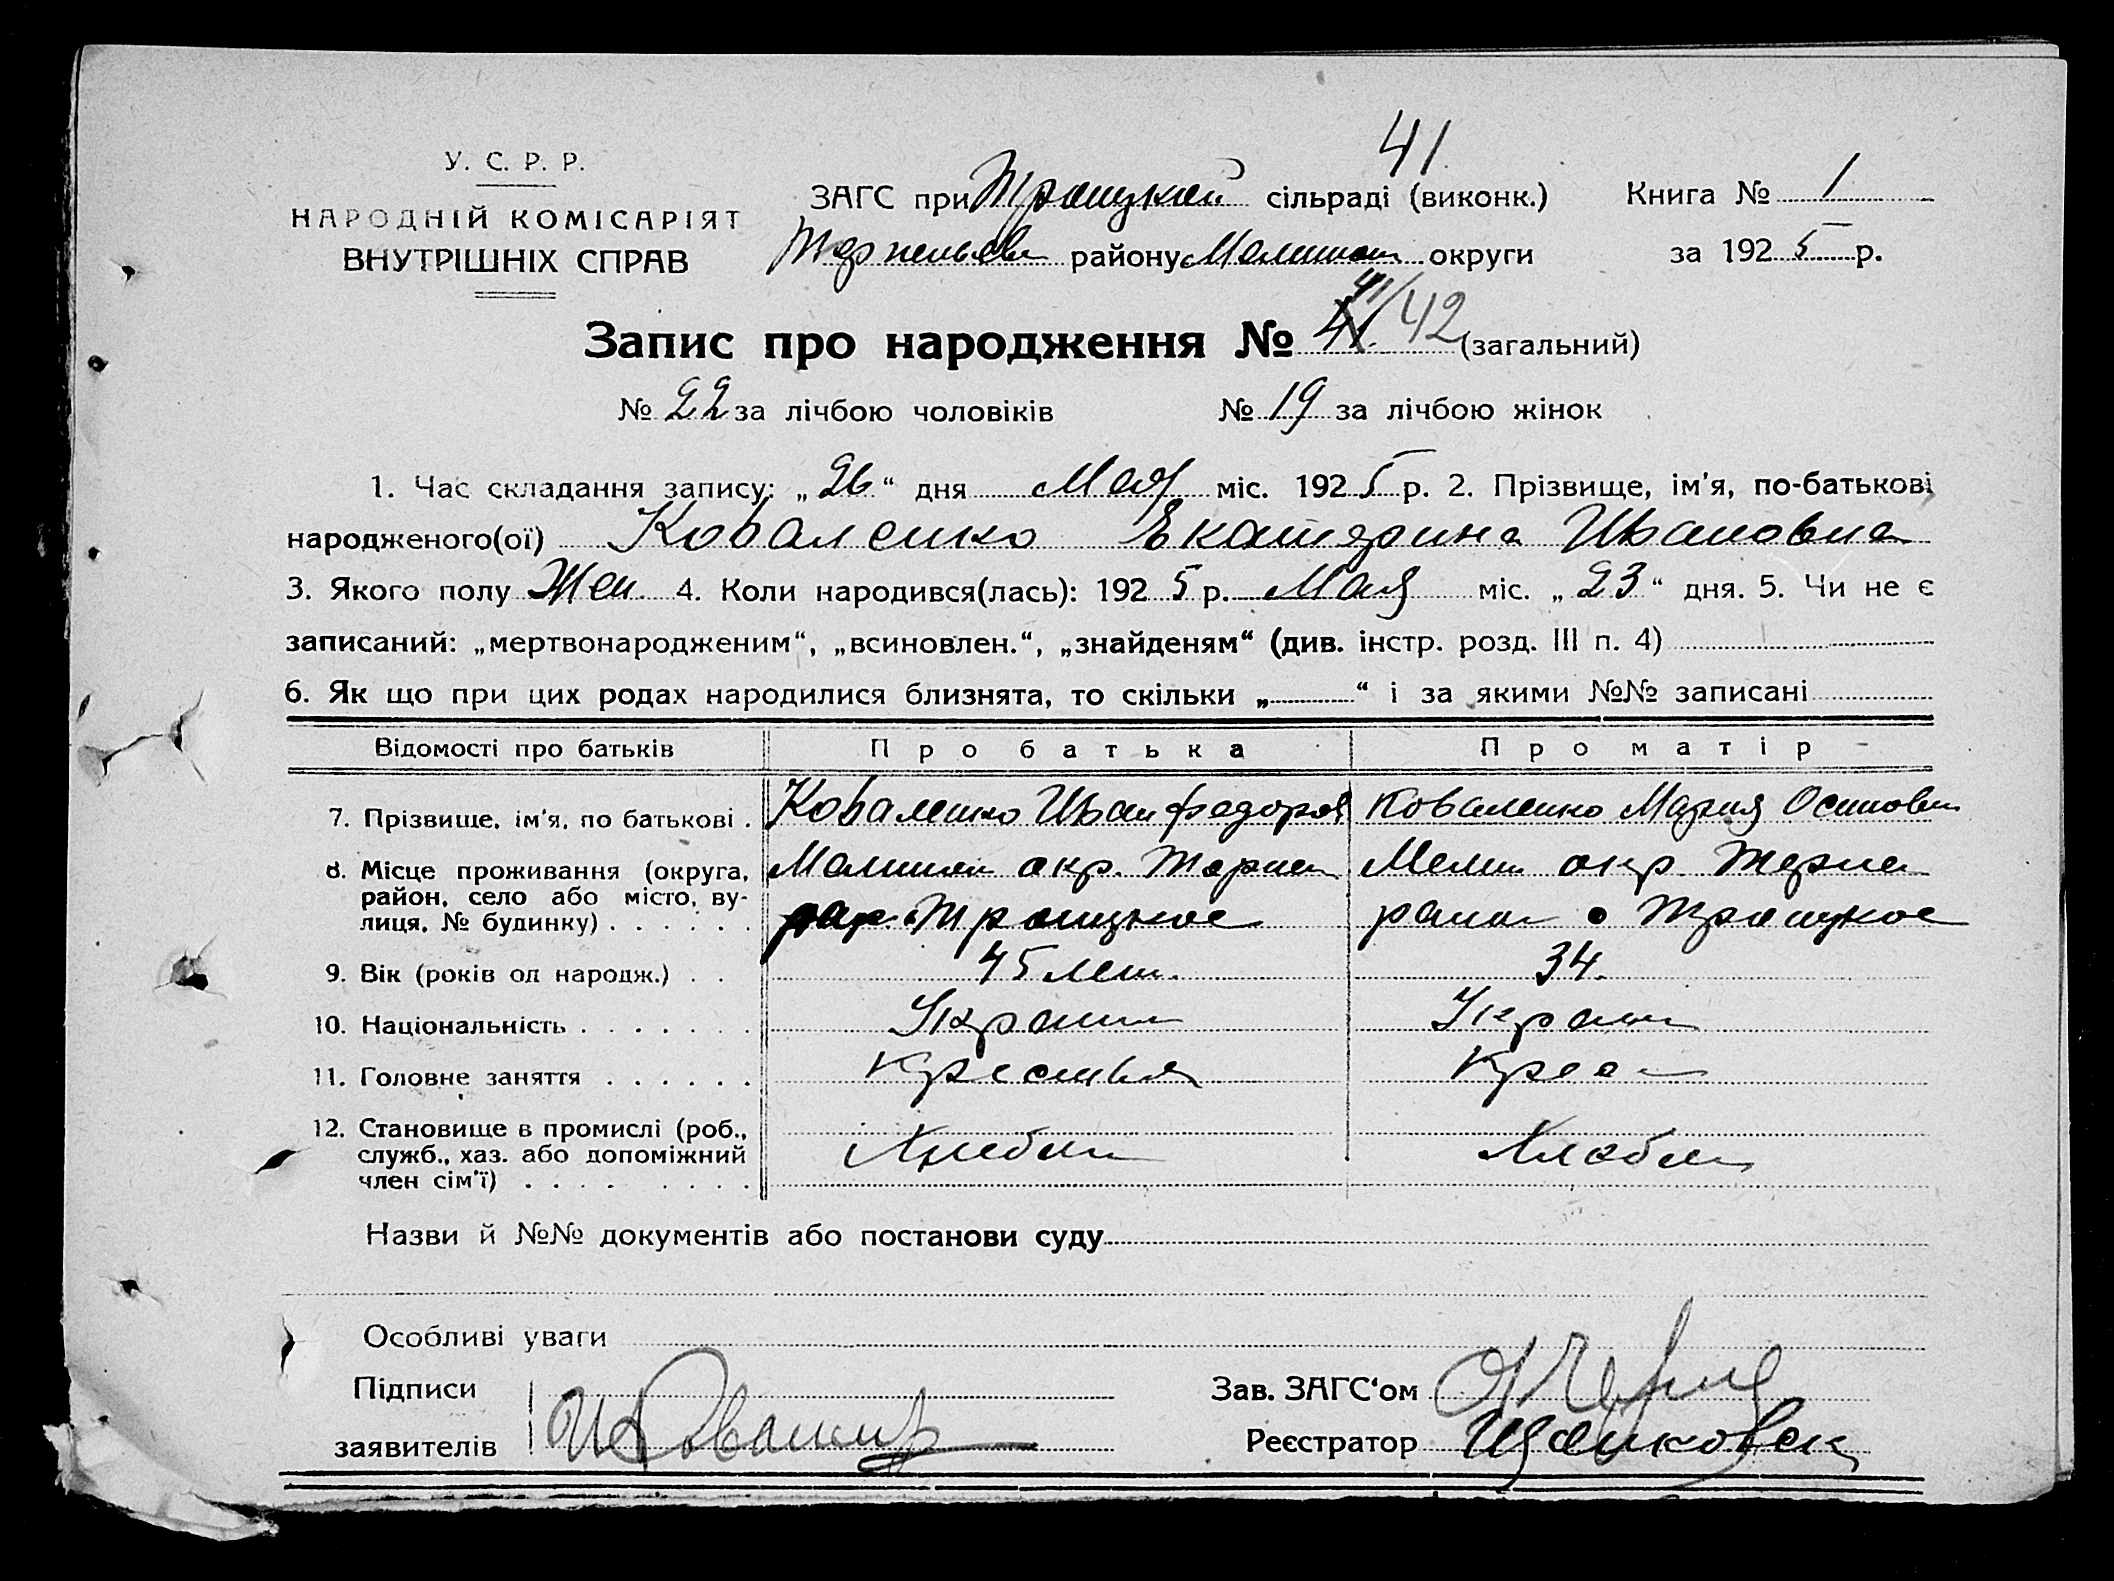 41
У. С. Р. Р.
НАРОДНІЙ КОМІСАРІЯТ
ВНУТРІШНІХ СПРАВ
ЗАГС при Троицкой сільраді (виконк.) Книга № 1
району округи за 1925 р.
Запис про народження № 41/42 (загальний)
№ 22 за лічбою чоловіків № 19 за лічбою жінок
1. Час складання запису: „26“ дня Мая міс. 1925 р. 2. Прізвище, ім'я, по-батькові
народженого(ої) Коваленко Екатерина Ивановна
3. Якого полу Жен. 4. Коли народився(лась): 1925 р. Мая міс. „23“ дня. 5. Чи не є
записаний: „мертвонародженим“, „всиновлен.“, „знайденям“ (див. інстр. розд. III п. 4)
6. Як що при цих родах народилися близнята, то скільки „ “ і за якими №№ записані
Відомості про батьків Про батька Про матір
7. Прізвище, ім'я, по батькові . Коваленко Иван Федоров Коваленко Мария Осиповн
8. Місце проживання (округа, окр. окр.
район, село або місто, ву- Троицкое Троицкое
лиця, № будинку) . . . . . .
9. Вік (років од народж.) . . 45 лет. 34.
10. Національність . . . . . . . Украин Украин
11. Головне заняття . . . . . . Крестья Крес
12. Становище в промислі (роб.,
служб., хаз. або допоміжний
член сім'ї) . . . . . . . .
Назви й №№ документів або постанови суду
Особливі уваги
Підписи Зав. ЗАГС‘ом
заявителів Реєстратор